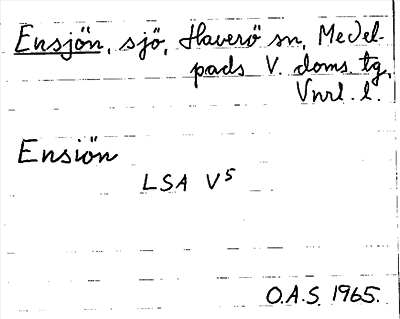 Ensjön, sjö, Haverö sn, Medel-
pads V. doms. tg,
Vnrl. l.
Ensiön
LSA V5
O.A.S. 1965.